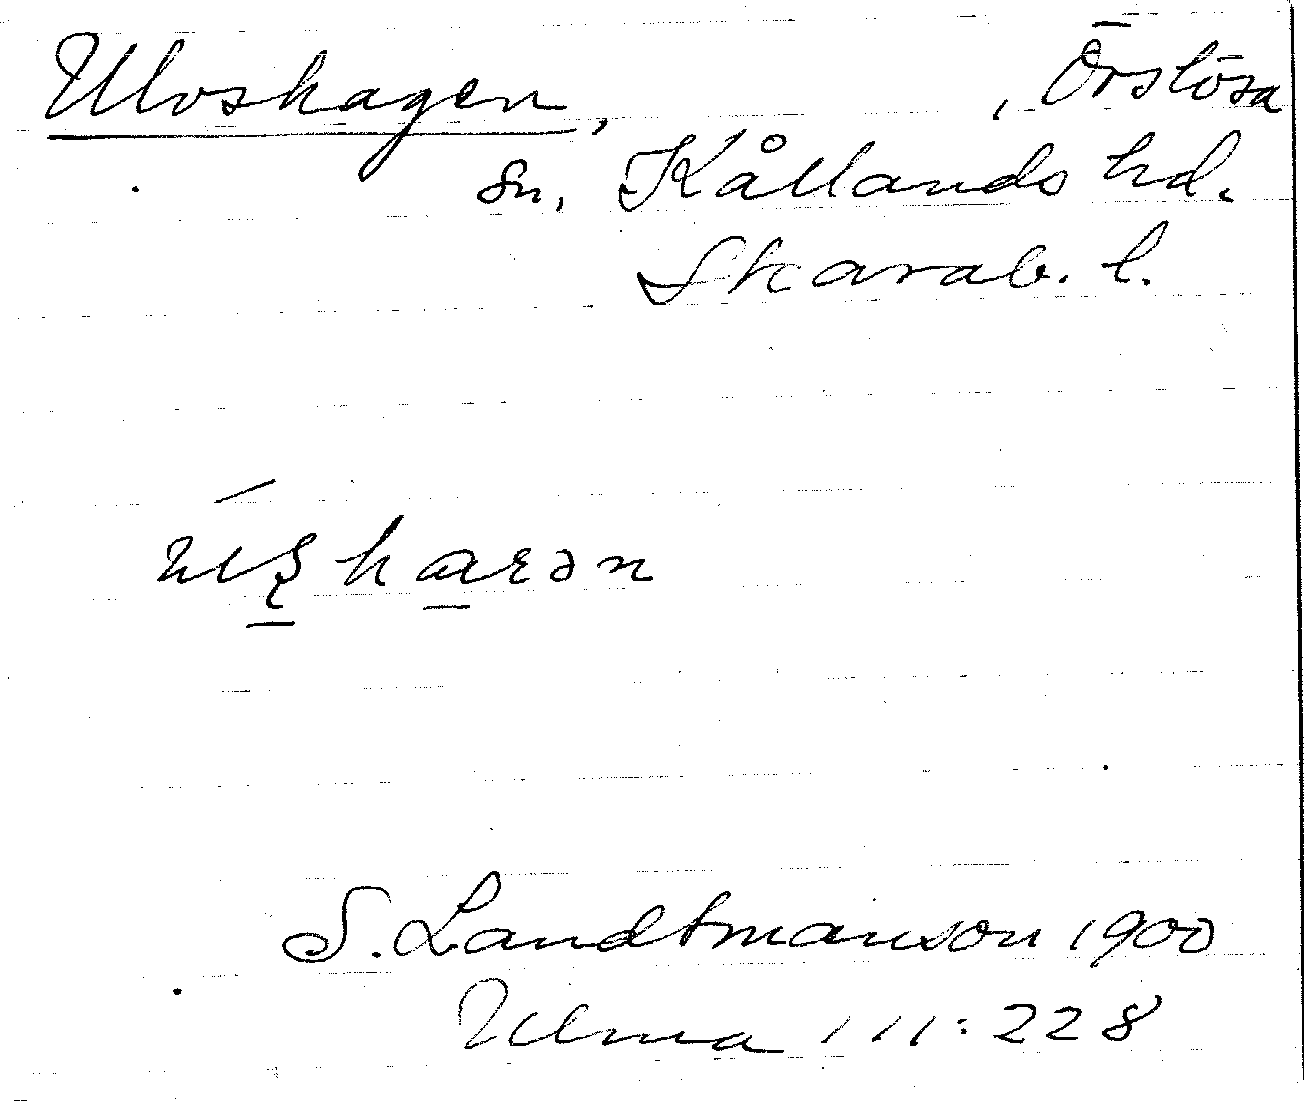 Ulvshagen, , Örslösa
sn, Kållands hd.
Skarab. l.
S. Landtmanson 1900
Ulma 111:228